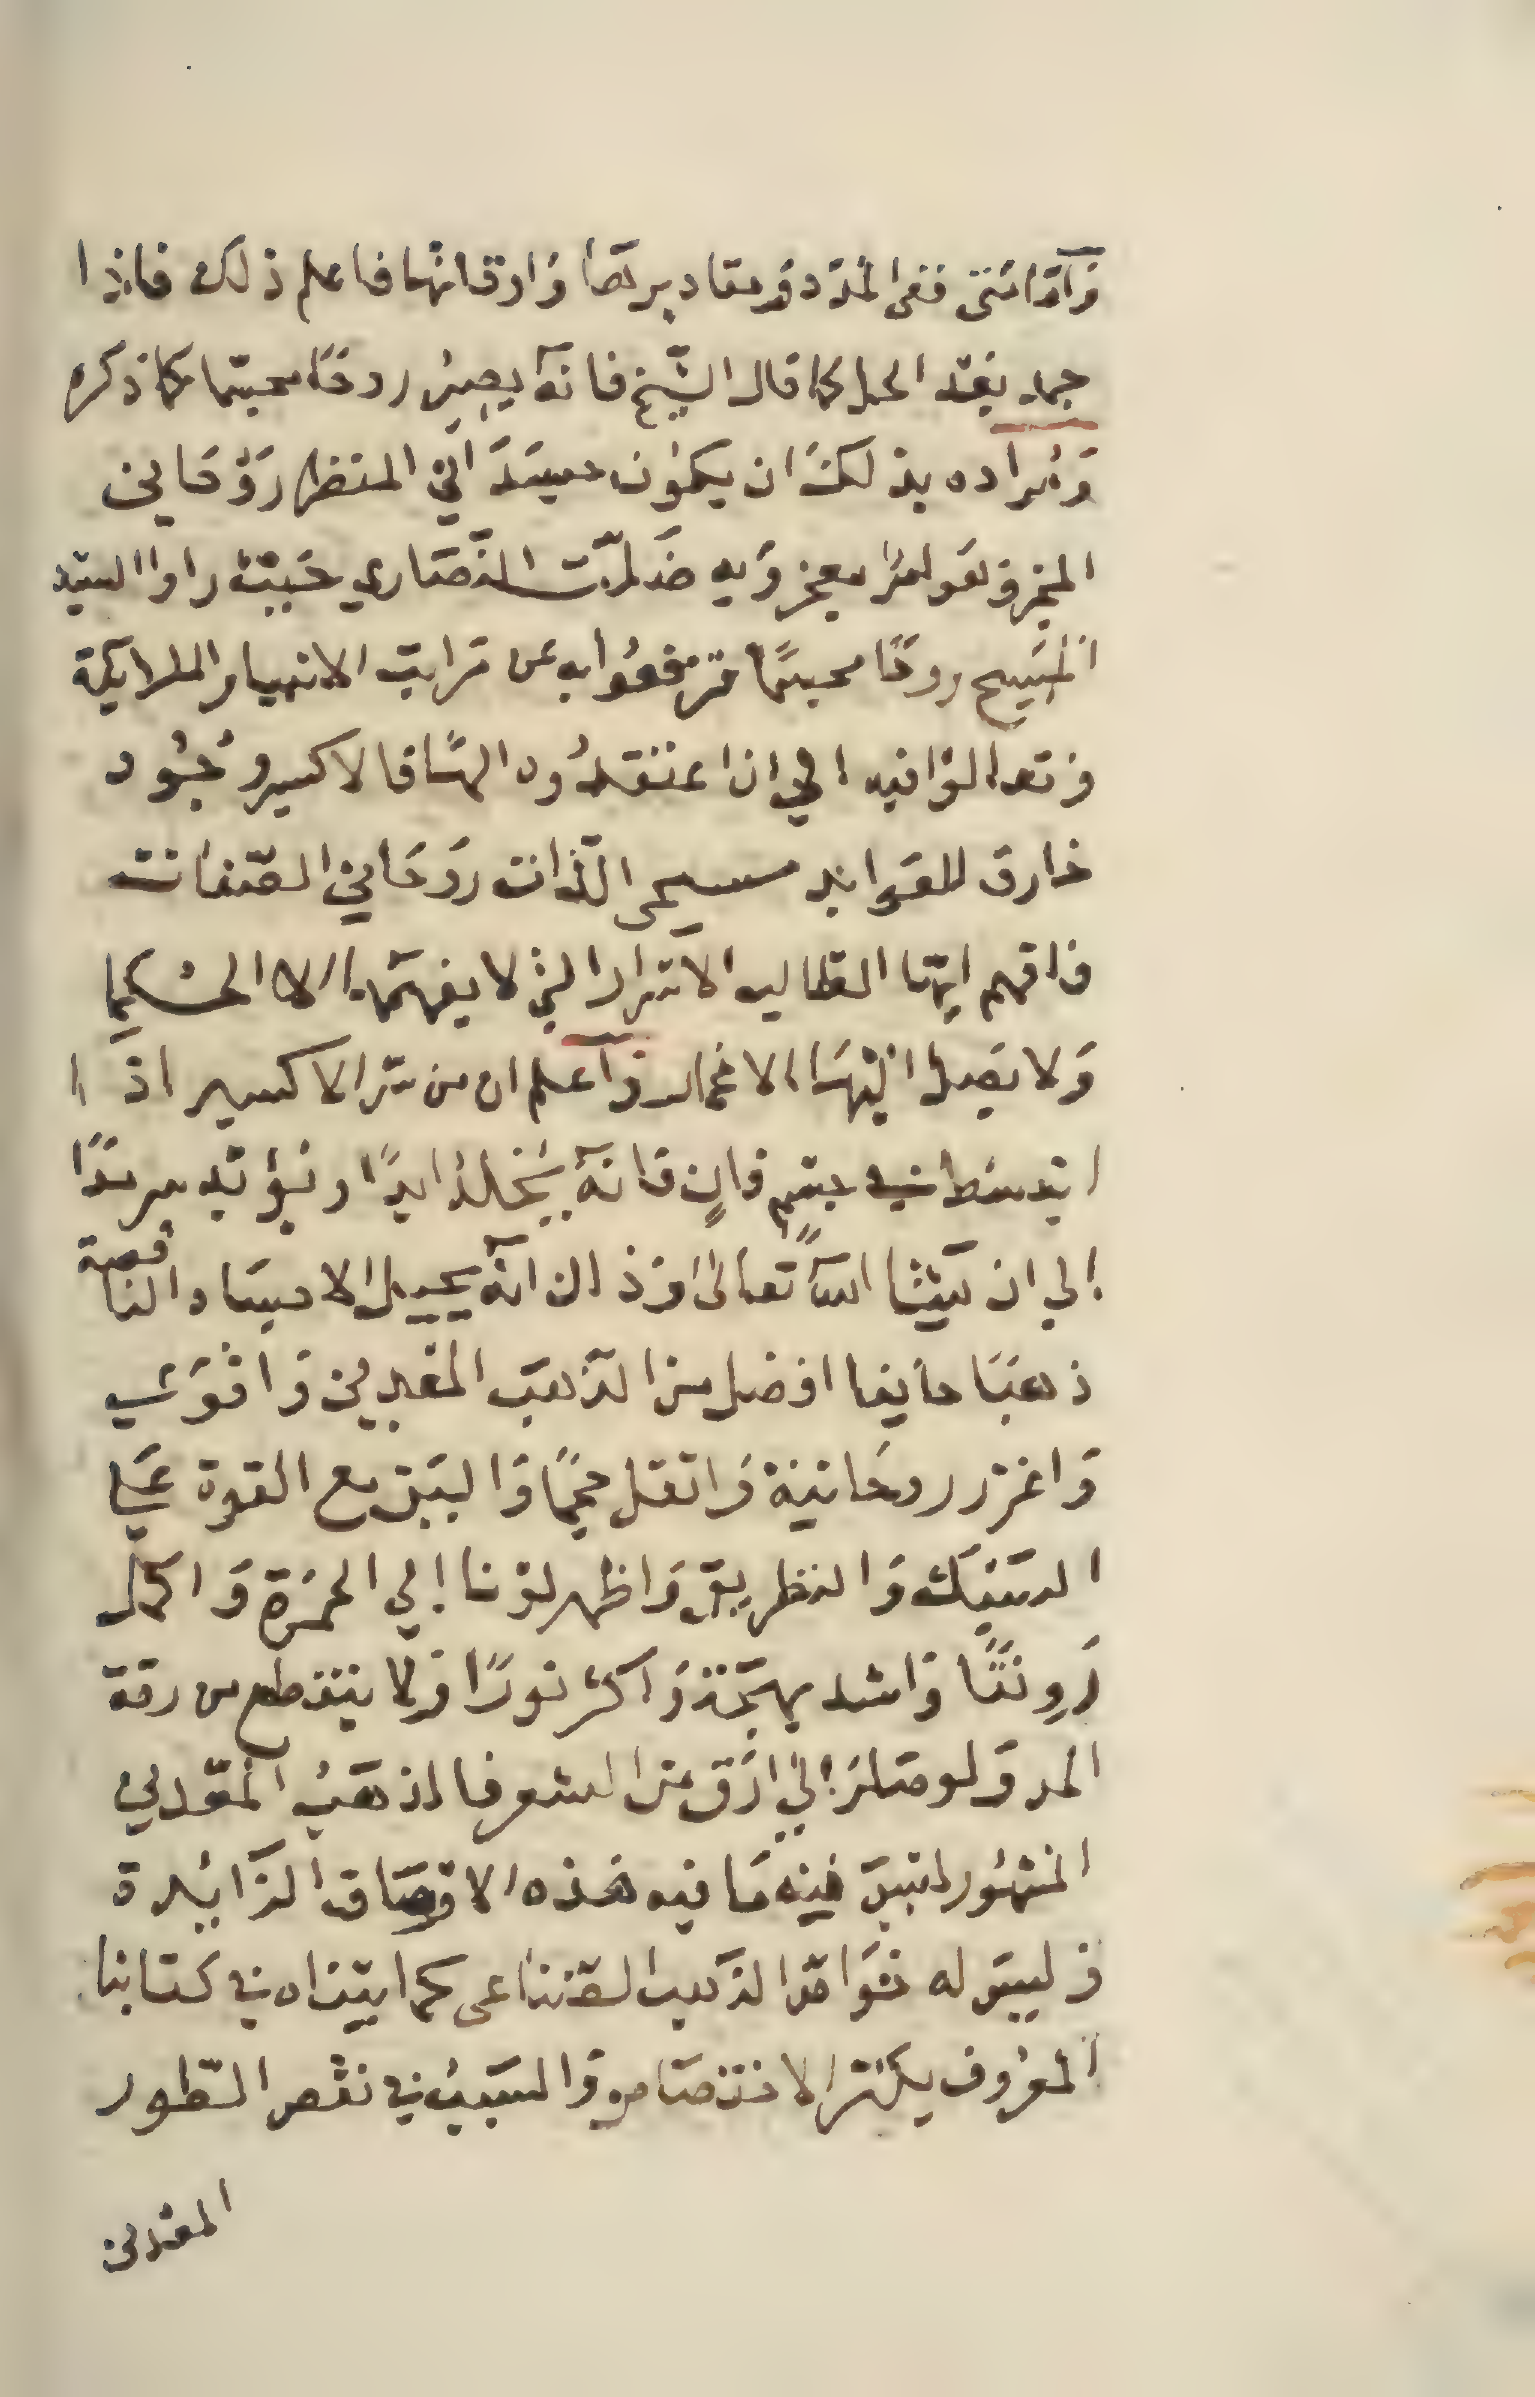 وأما متى ففى المدد ومقاديرها واوقاتها فاعلم ذلك فاذا
جمد بعد الحل كما قال الشيخ فانه يصير روحًا مجسما كما ذكره
ومراده بذلك ان يكون جسداني المنظر روحانى
المخبر وهو امر معجز وبه ضلت النصاري حيث راوا السيد
المسيح روحًا مجسمًا فرفعوا به عن مراتب الانبيا والملايكة
وتغالوا فيه الي ان اعتقدوه الهًا فالاكسير موجود
خارق للعوايد مسيحى الذات روحاني الصفات
فافهم ايها الطالب الاسرار التي لا يفهمها الا الحكما
ولا يصل اليها الا العمال واعلم ان من سر الاكسير اذا
انبسط في جسم فانٍ فانه يخلد ابدًا ويؤبد سرمدًا
الي ان يشا الله تعالى وذلك انه يحيل الاجساد الناقصة
ذهبًا خالصا افضل من الذهب المعدني واقوي
واغزر روحانية واثقل حجمًا والين مع القوة علي
السبك والتطريق واظهر لونا الي الحمرة واكمل
رونقًا واشد بهجة واكثر نورًا ولا ينقطع من رقة
المد ولو صار الي ارق من الشعر فالذهب المعدني
المشهور ليس فيه ما فيه هذه الاوصاف الزايدة
وليس له خواص الذهب الصناعى كما بيناه في كتابنا
المعروف بكنز الاختصاص والسبب في نقص الطور
المعدنى